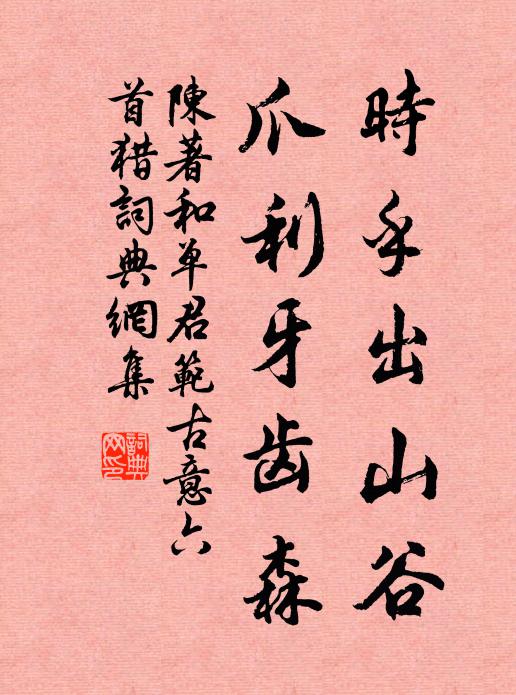 時乎出山谷
爪利牙齿森
陳著和单君範古意六
首猎詞典網集
詞典网印